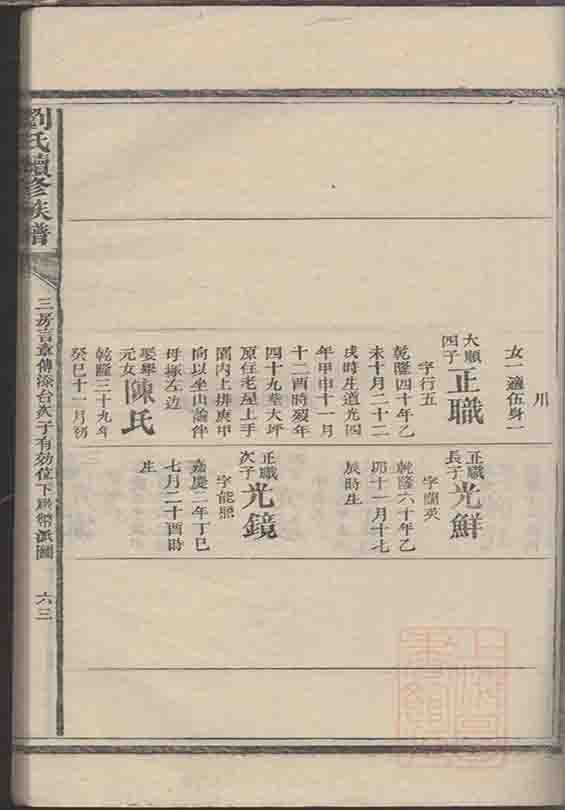 川
女一適伍身一
大順四子正職
字行五
乾隆四十年乙
未十月二十二
戌時生道光四
年甲申十一月
十二酉時歿年
四十九葬大坪
原住老屋上手
圍內上排庚甲
向以坐山論伴
母塚左边
娶舉
元女陳氏
乾隆三十九年
癸巳十一月初
正職長子光鮮
字蘭英
乾隆六十年乙
卯十一月十七
辰時生
正職次子光鏡
字能照
嘉慶二年丁巳
七月二十酉時
生
劉氏續修族譜
三房言章傳添台次子有効位下聯幣派圖
六三